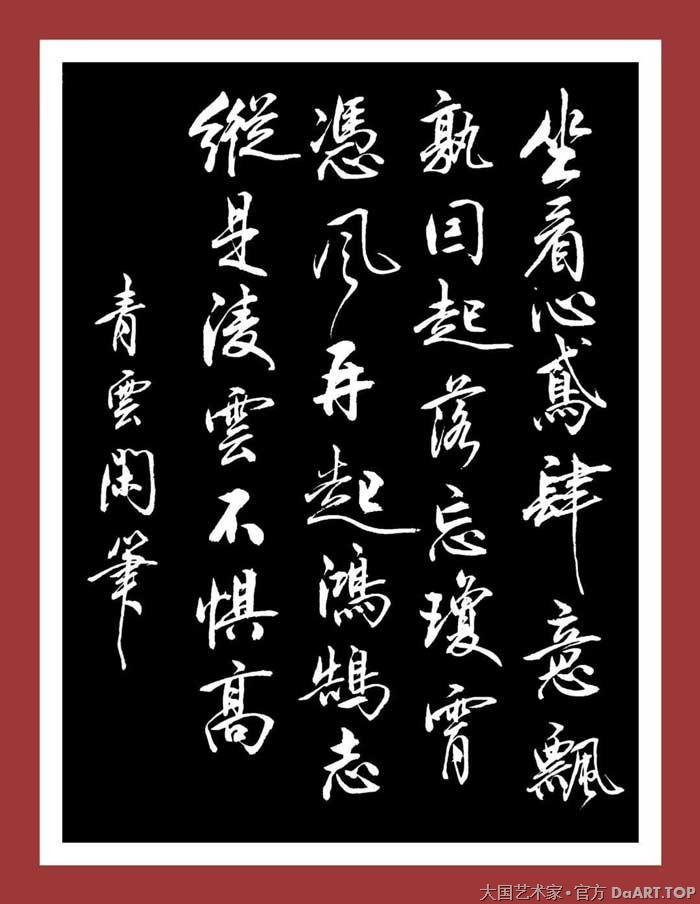 坐看沁鳶肆意飄
孰囙起落忘瓊霄
憑風再起鴻鵠志
縱是淩雲不惧髙
青雲閑筆
大国艺术家·官方 DaART.TOP